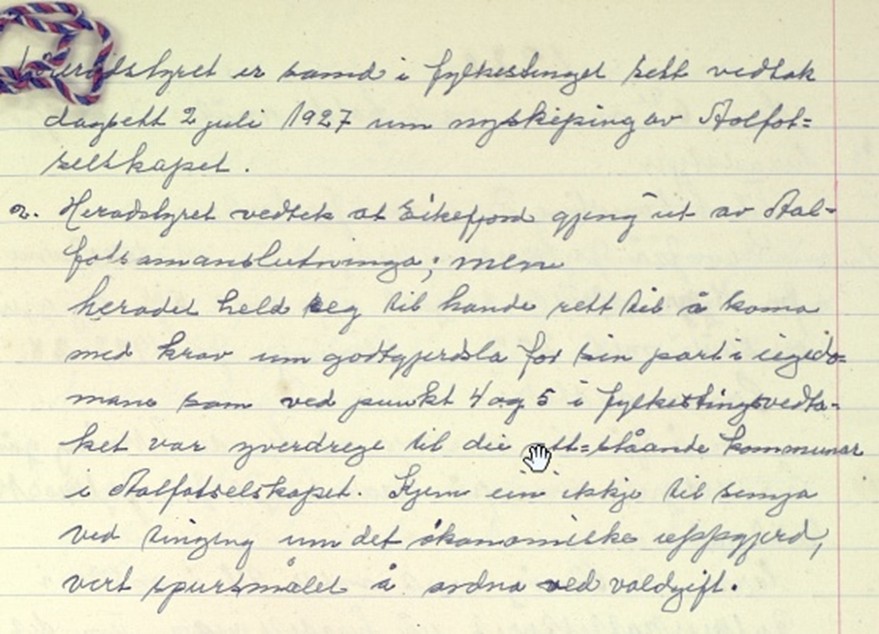 heradstyret er samd i fylkestinget sitt vedtak
dagsett 2 juli 1927 um nyskiping av Aalfot=
selskapet.
2. Heradstyret vedtek at Eikefjord gjeng ut av Aal-
fotsamanslutninga; men
heradet held seg til hande rett til å koma
med krav um godtgjerdsla for sin part i eigedo-
mane som ved punkt 4 og 5 i fylkestingsvedta-
ket var yverdrege til dei att=ståande kommunar
i Aalfotselskapet. Kjem ein ikkje til semja
ved tinging um det økonomiske uppgjerd,
vert spursmålet å ordna ved valdgift.